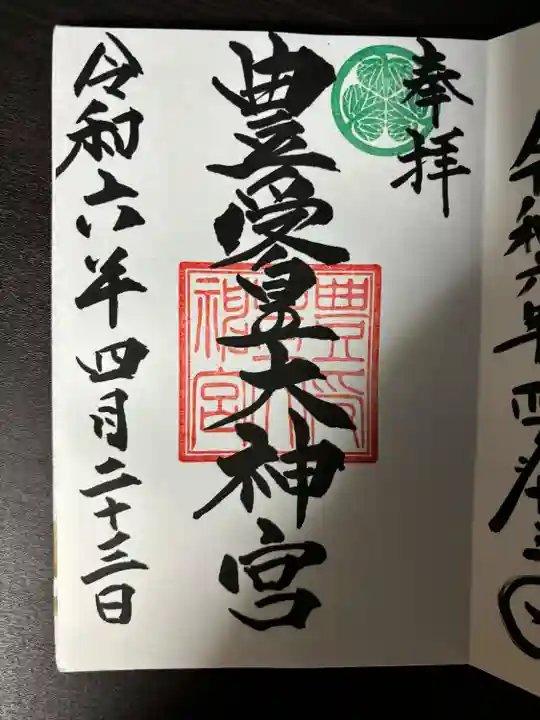 令和六年四月
奉拝
豊受皇大神宮
豊受
皇大
神宮
令和六年四月二十三日